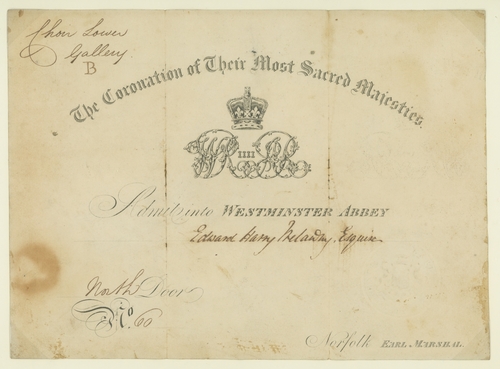 Choir Lower
Gallery
B
The Coronation of Their Most Sacred Majesties.
WR IIII AR
Admit into WESTMINSTER ABBEY
Edward Harry Trelawny, Esquire
North Door
No. 60
Norfolk EARL MARSHAL.